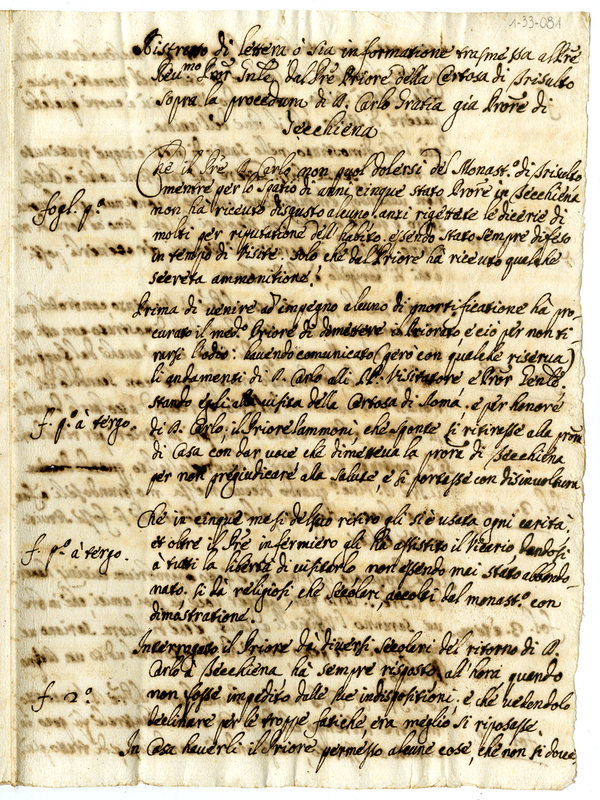 1-33-081
Ristretto di lettera ò sia informatione trasmessa al Pre
Reu.mo Pror Gnle, dal Pre Priore della Certosa di Trisulto
sopra la procedura di D. Carlo Gratia già Prore di
Secchiena
Che il Pre D. Carlo non puol dolersi del Monast.o di Trisulto
mentre per lo spatio di anni cinque stato Prore in Secchiena
fogl. p.o
non hà riceuto disgusto alcuno. anzi rigettate le dicerie di
molti per riputatione dell'habito, essendo stato sempre difeso
in tempo di Visite. solo che dal Priore hà riceuto qualche
secreta ammonitione.
Prima di venire ad impegno alcuno di mortificatione hà pro-
curato il med.o Priore di demettere il Priorato, e ciò per non ti-
rarsi l'odio: hauendo comunicato (però con qualche riserua)
li andamenti di D. Carlo alli PP. Visitatore e Pror
stando egli alla visita della Certosa di Roma. e per honore
f. p.o à tergo.
di D. Carlo, il Priore l'ammonì, che sponte si ritirasse alla prora
di Casa con dar voce che dimetteua la prora di Secchiena
per non pregiudicare alla salute, e si portasse con disinvoltura
Che in cinque mesi del suo ritiro gli si è usata ogni carità,
et oltre il Pre infermiero gli hà assistito il Vicario dandosi
f. p.o à tergo.
à tutti la libertà di visitarlo non essendo mai stato abbando-
nato. si dà religiosi, che secolari, accolti dal monast.o con
dimostratione.
Interrogato il Priore dà diversi secolari del ritorno di D.
Carlo à Secchiena hà sempre risposto, all'hora quando
f. 2.o
non fosse impedito dalle sue indispositioni. e che uedendolo
declinare per le troppe fatiche, era meglio, si riposasse.
In Casa hauerli il Priore permesso alcune cose, che non si doue,